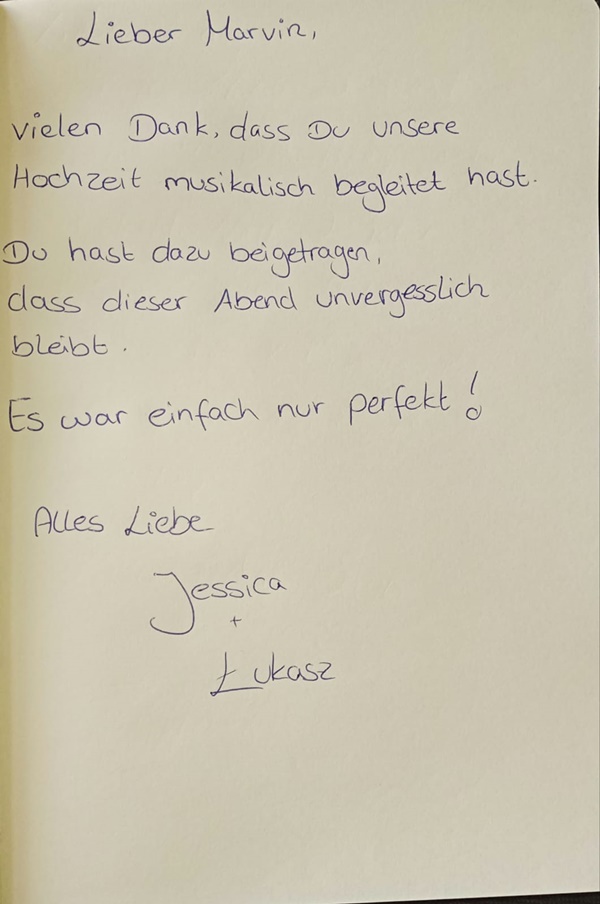 Lieber Marvin,
vielen Dank, dass Du unsere
Hochzeit musikalisch begleitet hast.
Du hast dazu beigetragen,
dass dieser Abend unvergesslich
bleibt.
Es war einfach nur perfekt!
Alles Liebe
Jessica
+
Łukasz